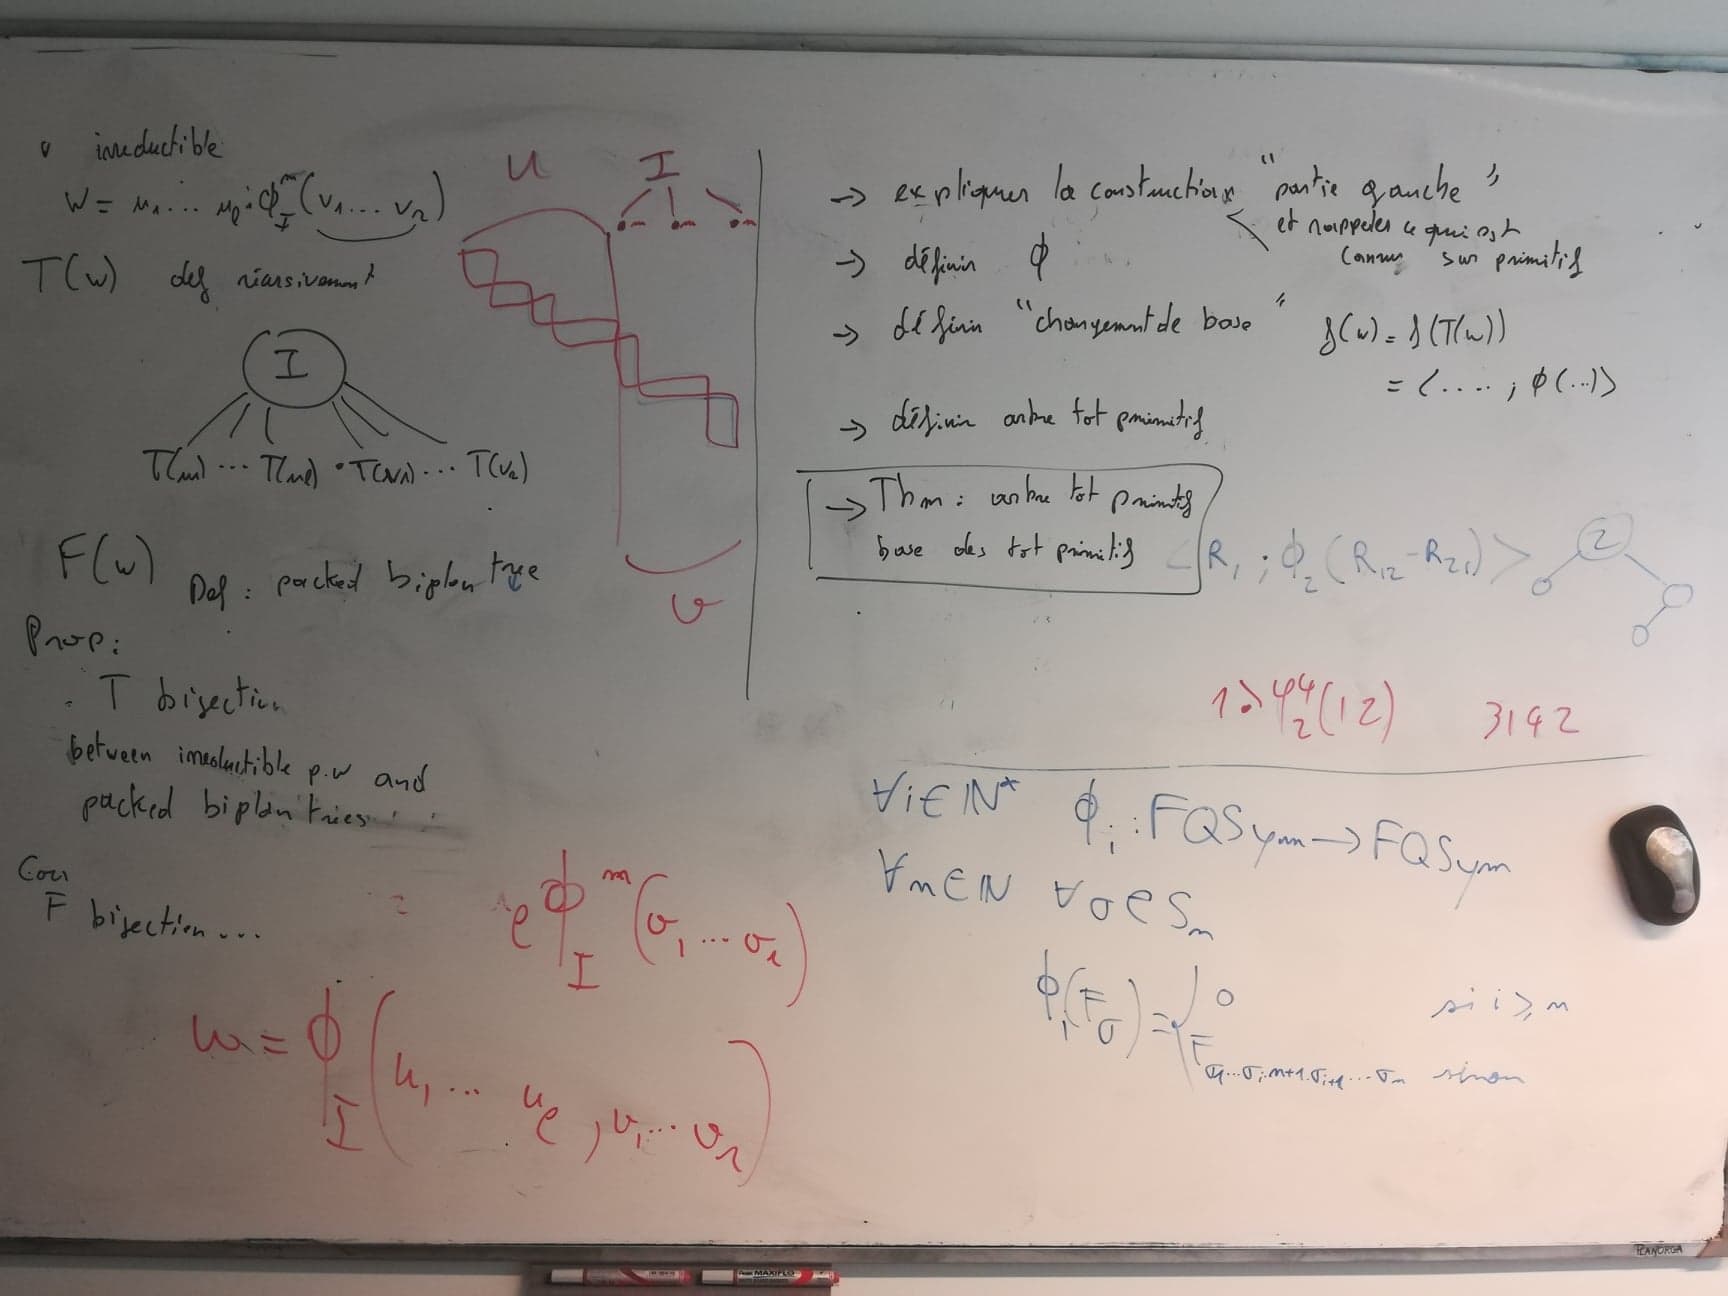 irreductible
W = u₁ ... uₚ . ϕ_I^m (v₁ ... v₂)
T(w) def récursivement
I
T(u₁) ... T(uₚ) • T(v₁) ... T(v₂)
F(w) Def : packed biplan tree
Prop:
. T bijection
between irreductible p.w and
packed biplan trees
Cor
F bijection ...
U
I
m m m
v
= ℓ ϕ_I^m (v₁ ... v₂)
w = ϕ_I (u₁ ... u_ℓ , v₁ ... v₂)
→ expliquer la construction "partie gauche"
et rappeler ce qui est
connu sur primitif
→ définir ϕ
→ définir "changement de base" f(w) = f(T(w))
= < .... ; ϕ(...) >
→ définir arbre tot primitif
→ Thm : arbre tot primitif
base des tot primitif
< R₁ ; ϕ₂ ( R₁₂ - R₂₁ ) >
2
φ₂⁴(12) 3142
∀i∈ℕ* ϕᵢ : FQSym → FQSym
∀n∈ℕ ∀σ∈Sₙ
ϕᵢ(F_σ) = { 0 si i ≥ n
F_σ₁...σᵢ.n+1.σᵢ₊₁...σₙ sinon
PLANORGA
MAXIFLO